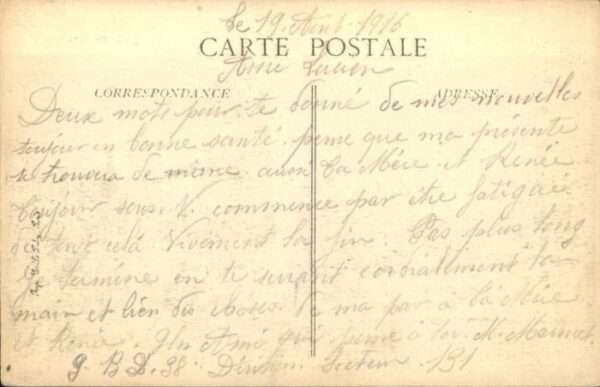 le 19 Aout 1916
CARTE POSTALE
Ami Lucien
CORRESPONDANCE
ADRESSE
Deux mots pour te donné de mes nouvelles
toujour en bonne santé. pense que ma présente
te trouvera de même. aussi ta Mère et Renée
toujour commence par être fatigué
de tout cela Vivement la fin. Pas plus long
Je termine en te serrant cordialement la
main et bien des choses de ma par à ta Mère
et Renée. Un Ami qui pense à toi. M.
G. B. D. 38. Division. Secteur. 131